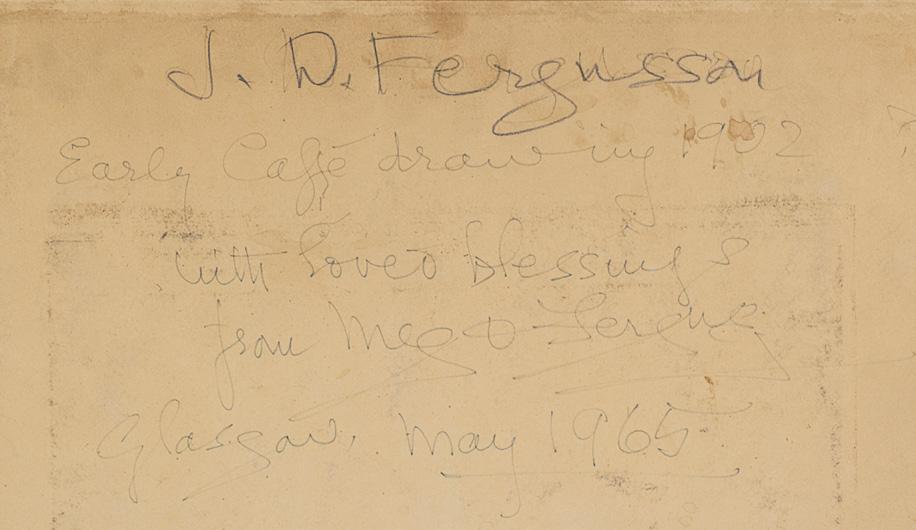 J. D. Fergusson
Early Café drawing 1902
with love & blessings
from Meg &
Glasgow, May 1965